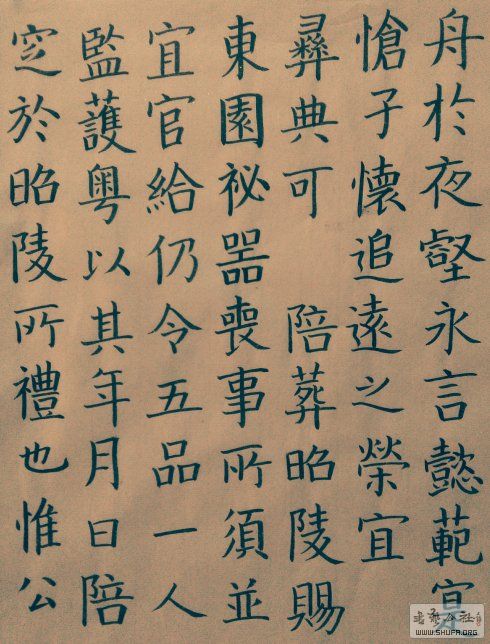 舟於夜壑永言懿範宜
愴子懷追遠之榮宜
彝典可 陪葬昭陵賜
東園祕器喪事所須並
宜官給仍令五品一人
監護粤以其年月日陪
窆於昭陵所禮也惟公
书艺公社
WWW.SHUFA.ORG